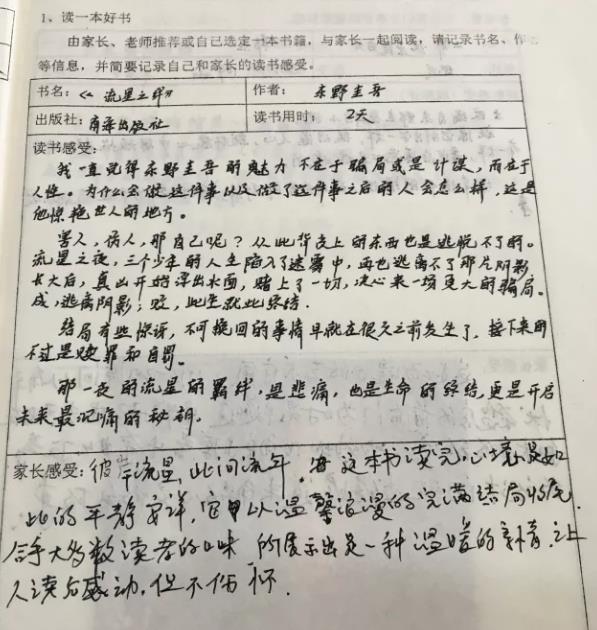 1、读一本好书
由家长、老师推荐或自己选定一本书籍，与家长一起阅读，请记录书名、作
等信息，并简要记录自己和家长的读书感受。
书名：《流星之绊》 作者：东野圭吾
出版社：南海出版社 读书用时：2天
读书感受：
我一直觉得东野圭吾的魅力不在于骗局或是计谋，而在于
人性。为什么会做这件事以及做了这件事之后的人会怎么样，这是
他惊艳世人的地方。
害人，伤人，那自己呢？从此背负上的东西也是逃脱不了的。
流星之夜，三个少年的人生陷入了迷雾中，再也逃离不了那片阴影
长大后，真凶开始浮出水面，赌上了一切，决心来一场更大的骗局。
成，逃离阴影；败，此生就此终结.
结局有些惊讶，不可挽回的事情早就在很久之前发生了，接下来的
不过是赎罪和自罚。
那一夜的流星的羁绊，是悲痛，也是生命的终结，更是开启
未来最沉痛的秘钥。
家长感受：彼岸流星，此间流年。 这本书读完，心境是如
此的平静安详，它以温馨浪漫的完满结局收尾
合乎大多数读者的口味 的展示出是一种温暖的亲情，让
人读后感动，但不伤怀.